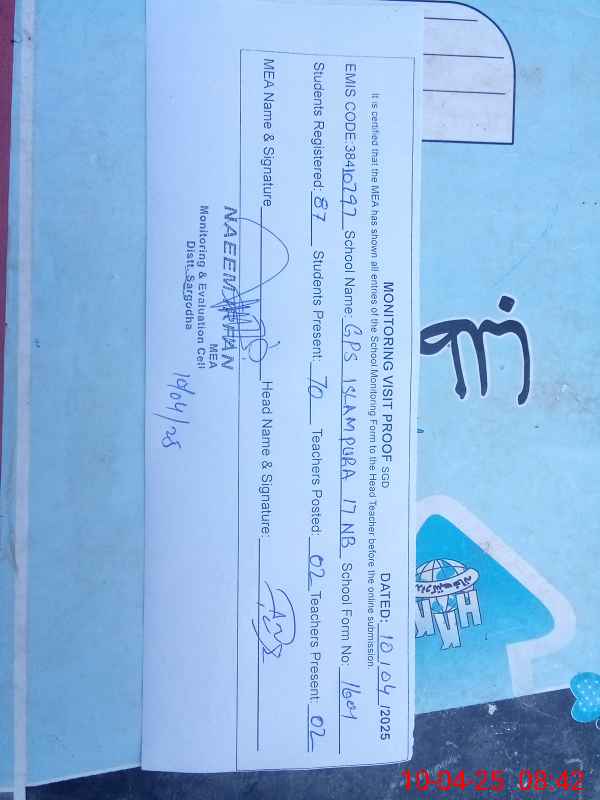 MONITORING VISIT PROOF SGD
DATED: 10/04/2025
It is certified that the MEA has shown all entries of the School Monitoring Form to the Head Teacher before the online submission.
EMIS CODE 38410797 School Name: GPS ISLAMPURA 17 NB School Form No: 1601
Students Registered: 87 Students Present: 70 Teachers Posted: 02 Teachers Present: 02
MEA Name & Signature Head Name & Signature:
NAEEM
MEA
Monitoring & Evaluation Cell
Distt. Sargodha
10/04/25
10-04-25 08:42